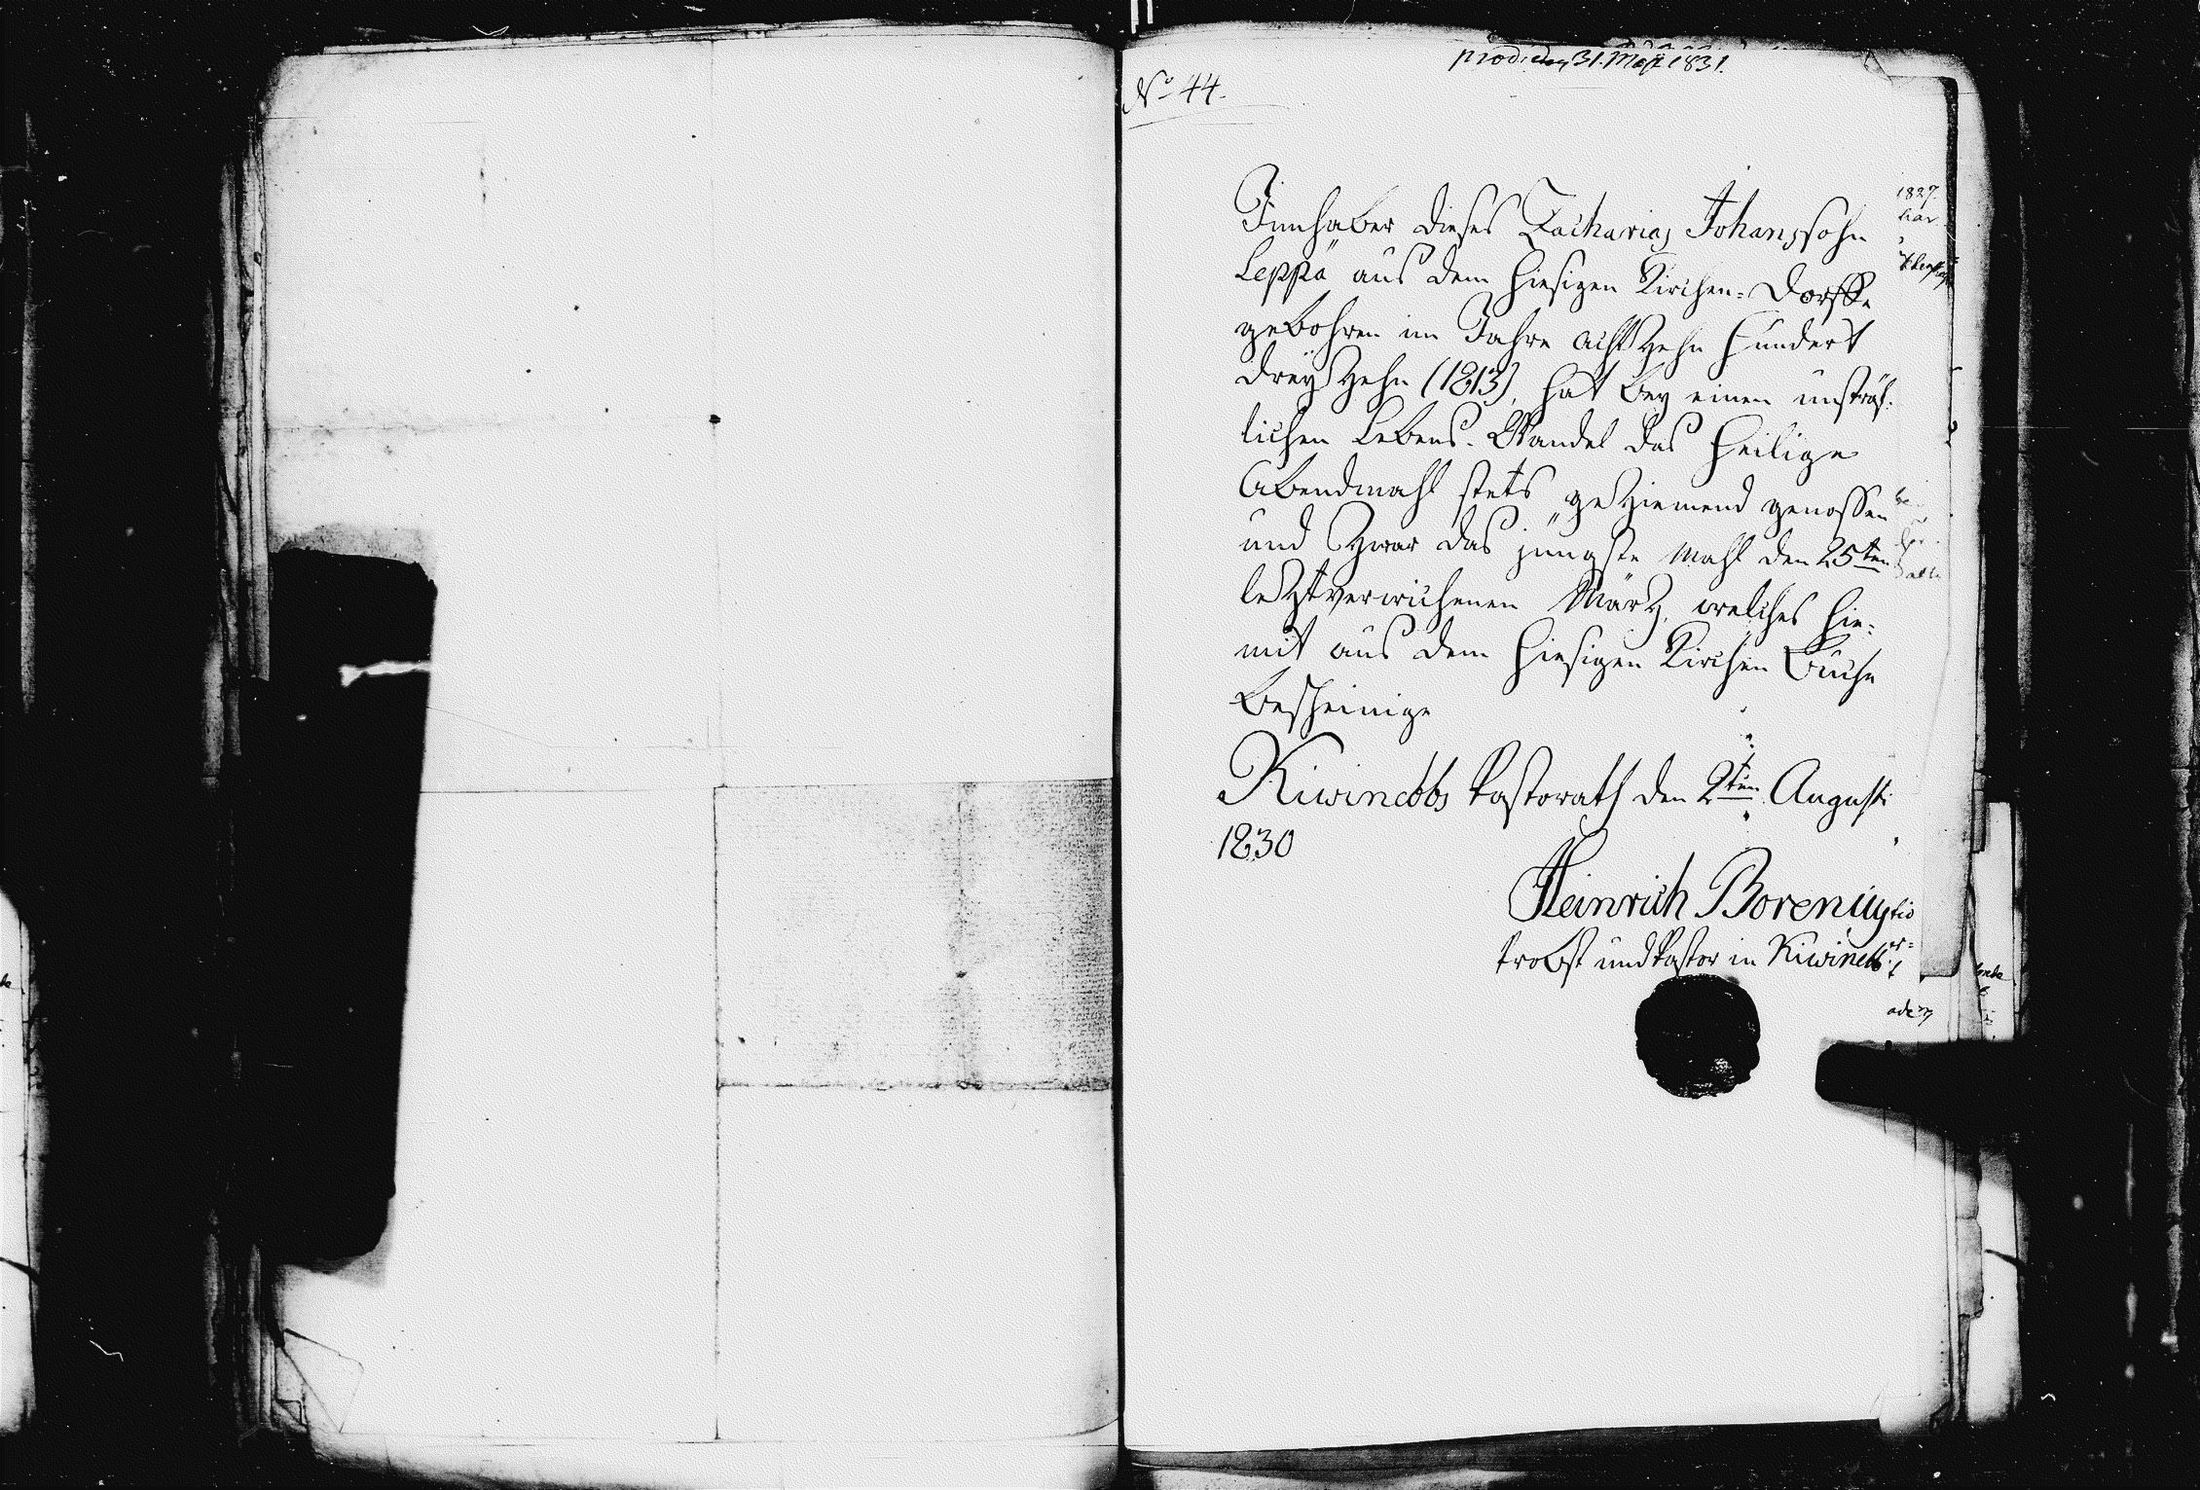 prod. den 31. May 1831.
No 44.
Innhaber dieses Zacharias Johanssohn
Leppä aus dem hiesigen Kirchen-Dorffe
gebohren im Jahre achtzehn hundert
dreyzehn (1813), hat bey einen unsträf-
lichen Lebens-Wandel das heilige
Abendmahl stets geziemend genossen
und zwar das jüngste Mahl den 25ten
leztverwichenen März, welches hie-
mit aus dem hiesigen Kirchen Buche
bescheinige
Kiwinebbs Pastorath den 2ten Augusti
1830
Heinrich Borenius
Probst und Pastor in Kiwinebb